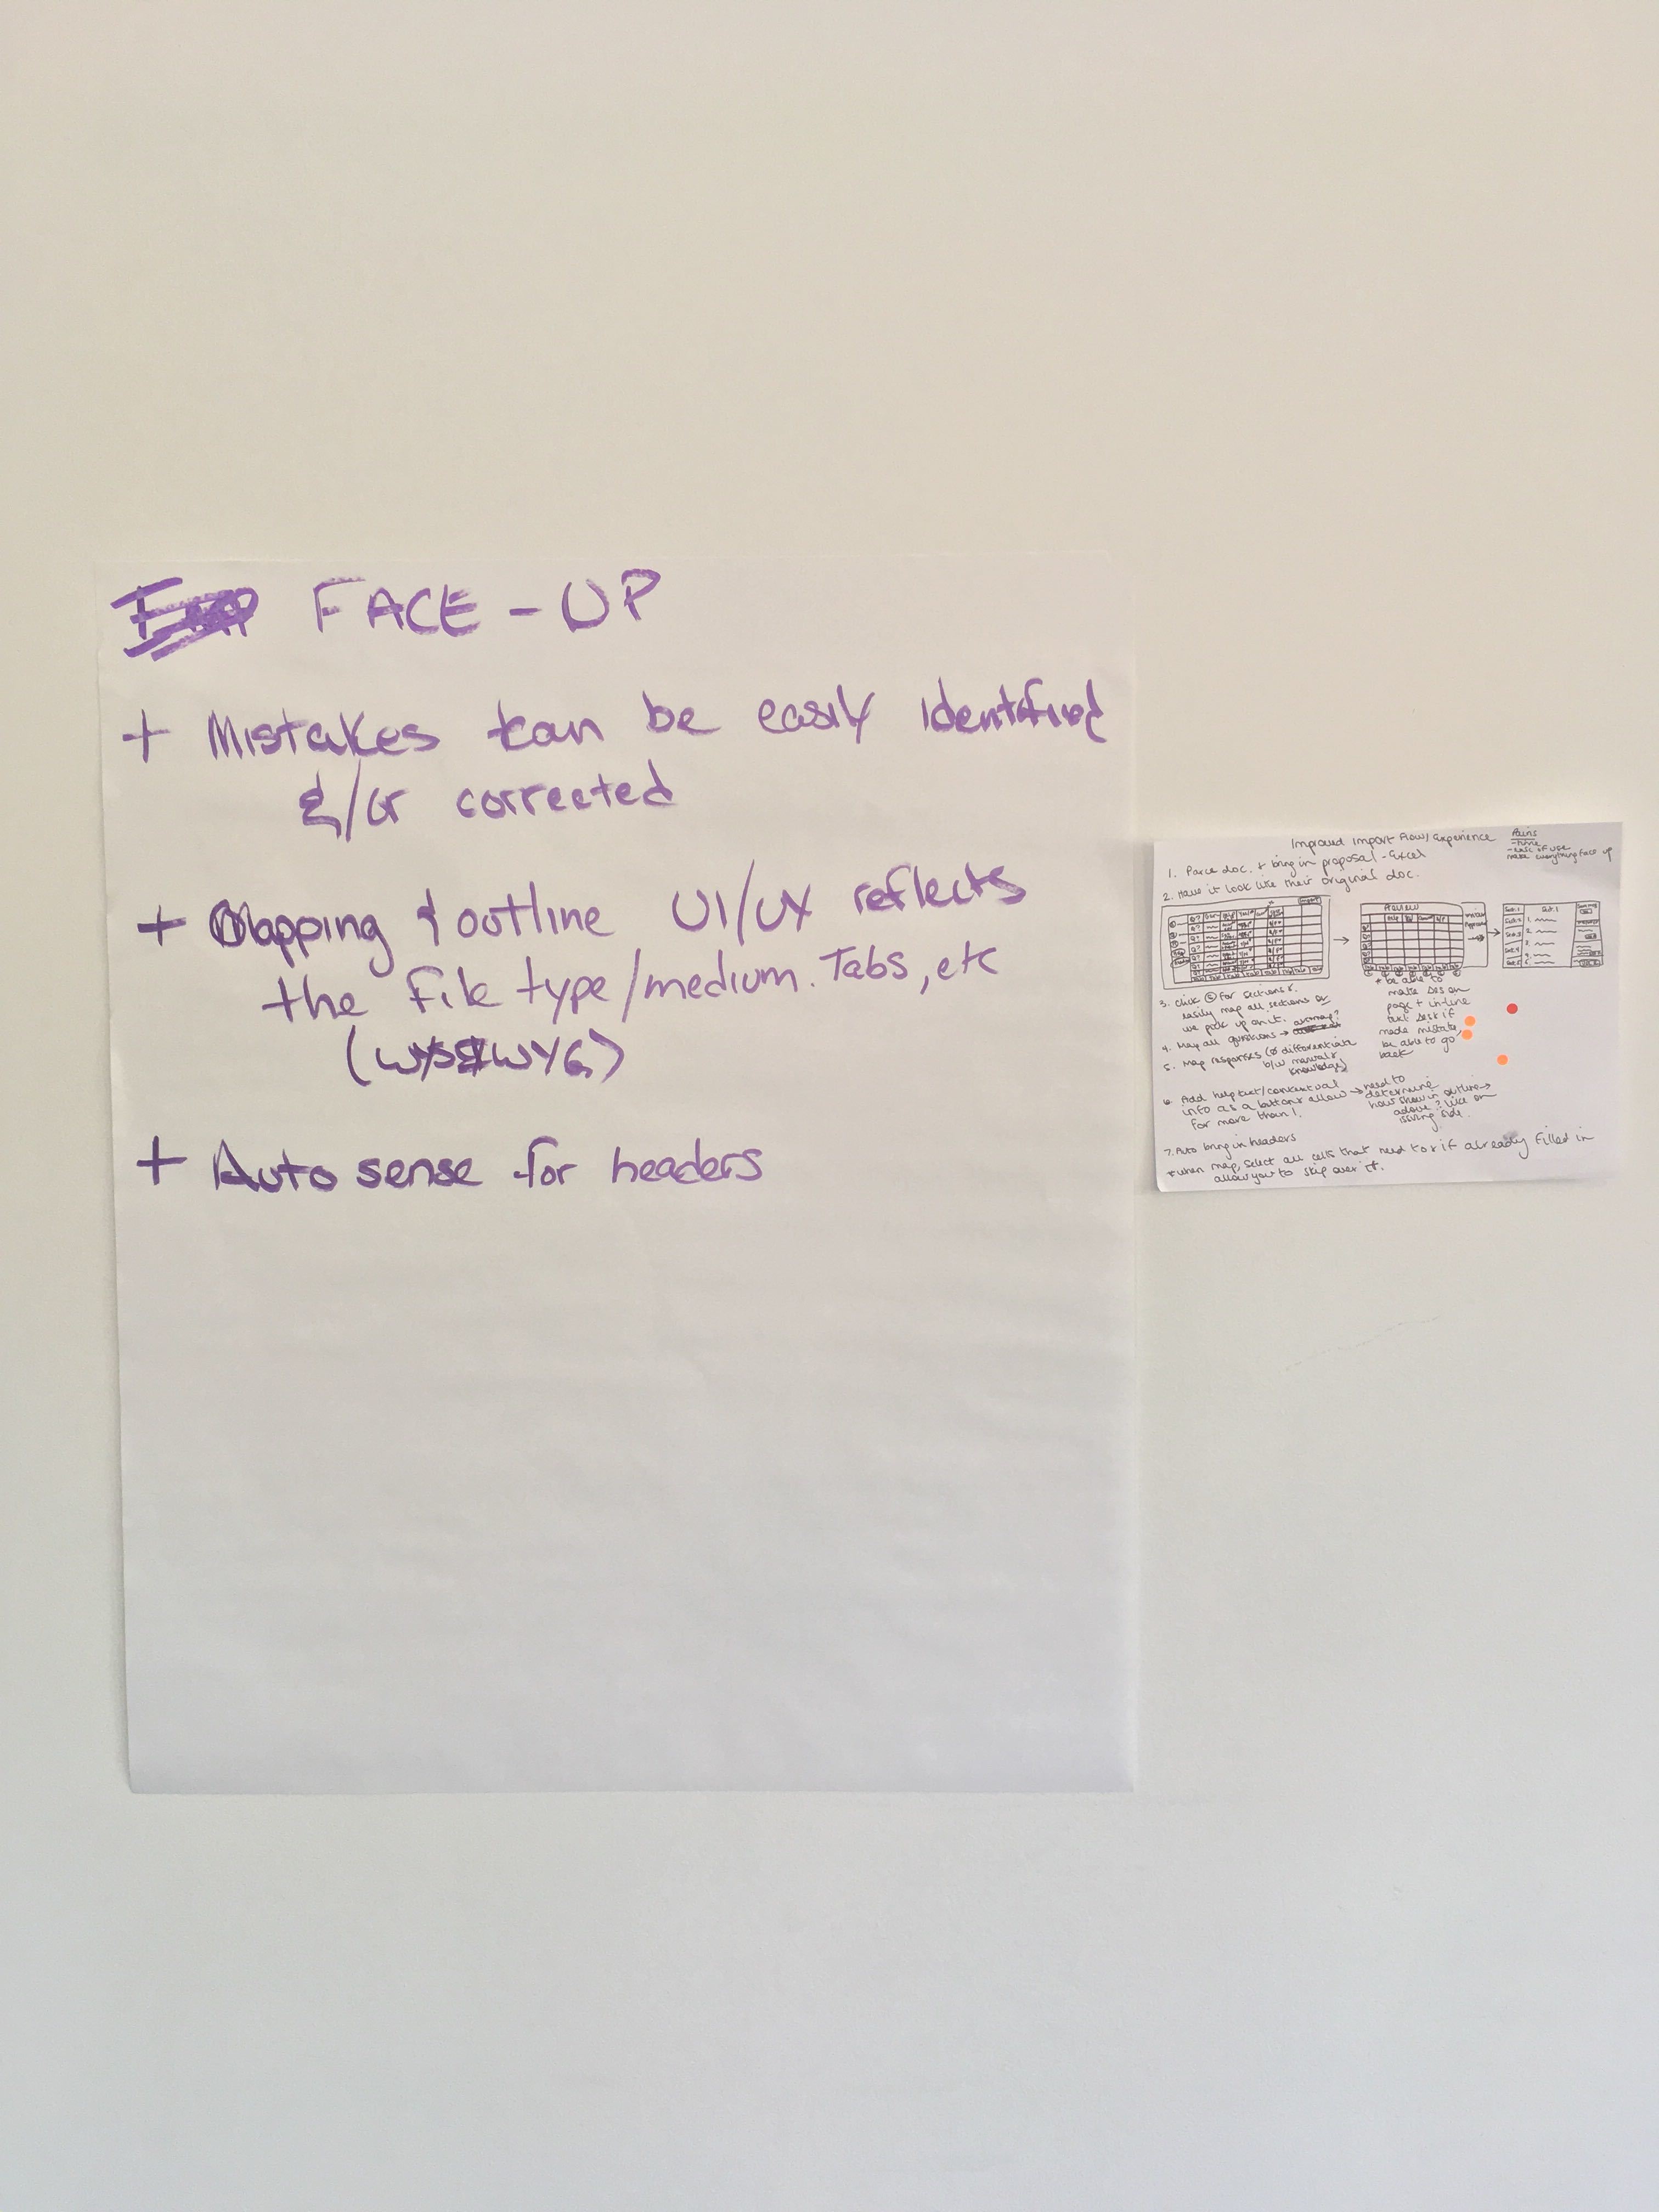 FACE-UP
+ Mistakes can be easily identified
&/or corrected
+ Mapping & outline UI/UX reflects
the file type/medium. Tabs, etc
(WYSIWYG)
+ Auto sense for headers
Improved Import Flow/Experience
Pains
-time
-ease of use
make everything face up
1. Parce doc. & bring in proposal - Excel
2. Have it look like their original doc.
Import
PREVIEW
Sect. 1
3. Click S for sections &
easily map all sections or
we pick up on it.
4. Map all questions → automap?
5. Map responses (& differentiate
b/w manual &
knowledge)
* be able to
make Δes on
page + in-line
text
made mistake,
be able to go
back
6. Add help text/contextual
info as a button & allow
for more than 1.
→ need to
determine
how show in outline →
above? like on
issuing side.
7. Auto bring in headers
* when map, select all cells that need to & if already filled in
allow you to skip over it.